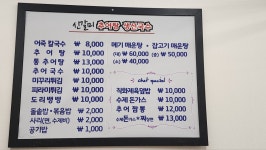 신갈미 추어탕 생선국수
어죽 칼국수 ₩ 8,000
추어탕 ₩ 10,000
통추어탕 ₩ 13,000
추어국수 ₩ 10,000
미꾸리튀김 ₩ 10,000
피라미튀김 ₩ 10,000
도리뱅뱅 ₩ 10,000
돌솥밥·볶음밥 ₩ 2,000
사리(면,수제비) ₩ 2,000
공기밥 ₩ 1,000
메기 매운탕 · 잡고기 매운탕
(대) ₩60,000 (중) ₩ 50,000
(소) ₩40,000
chef special
직화제육덮밥 ₩ 10,000
수제 돈가스 ₩ 10,000
추어짬뽕 ₩ 12,000
₩ 13,000